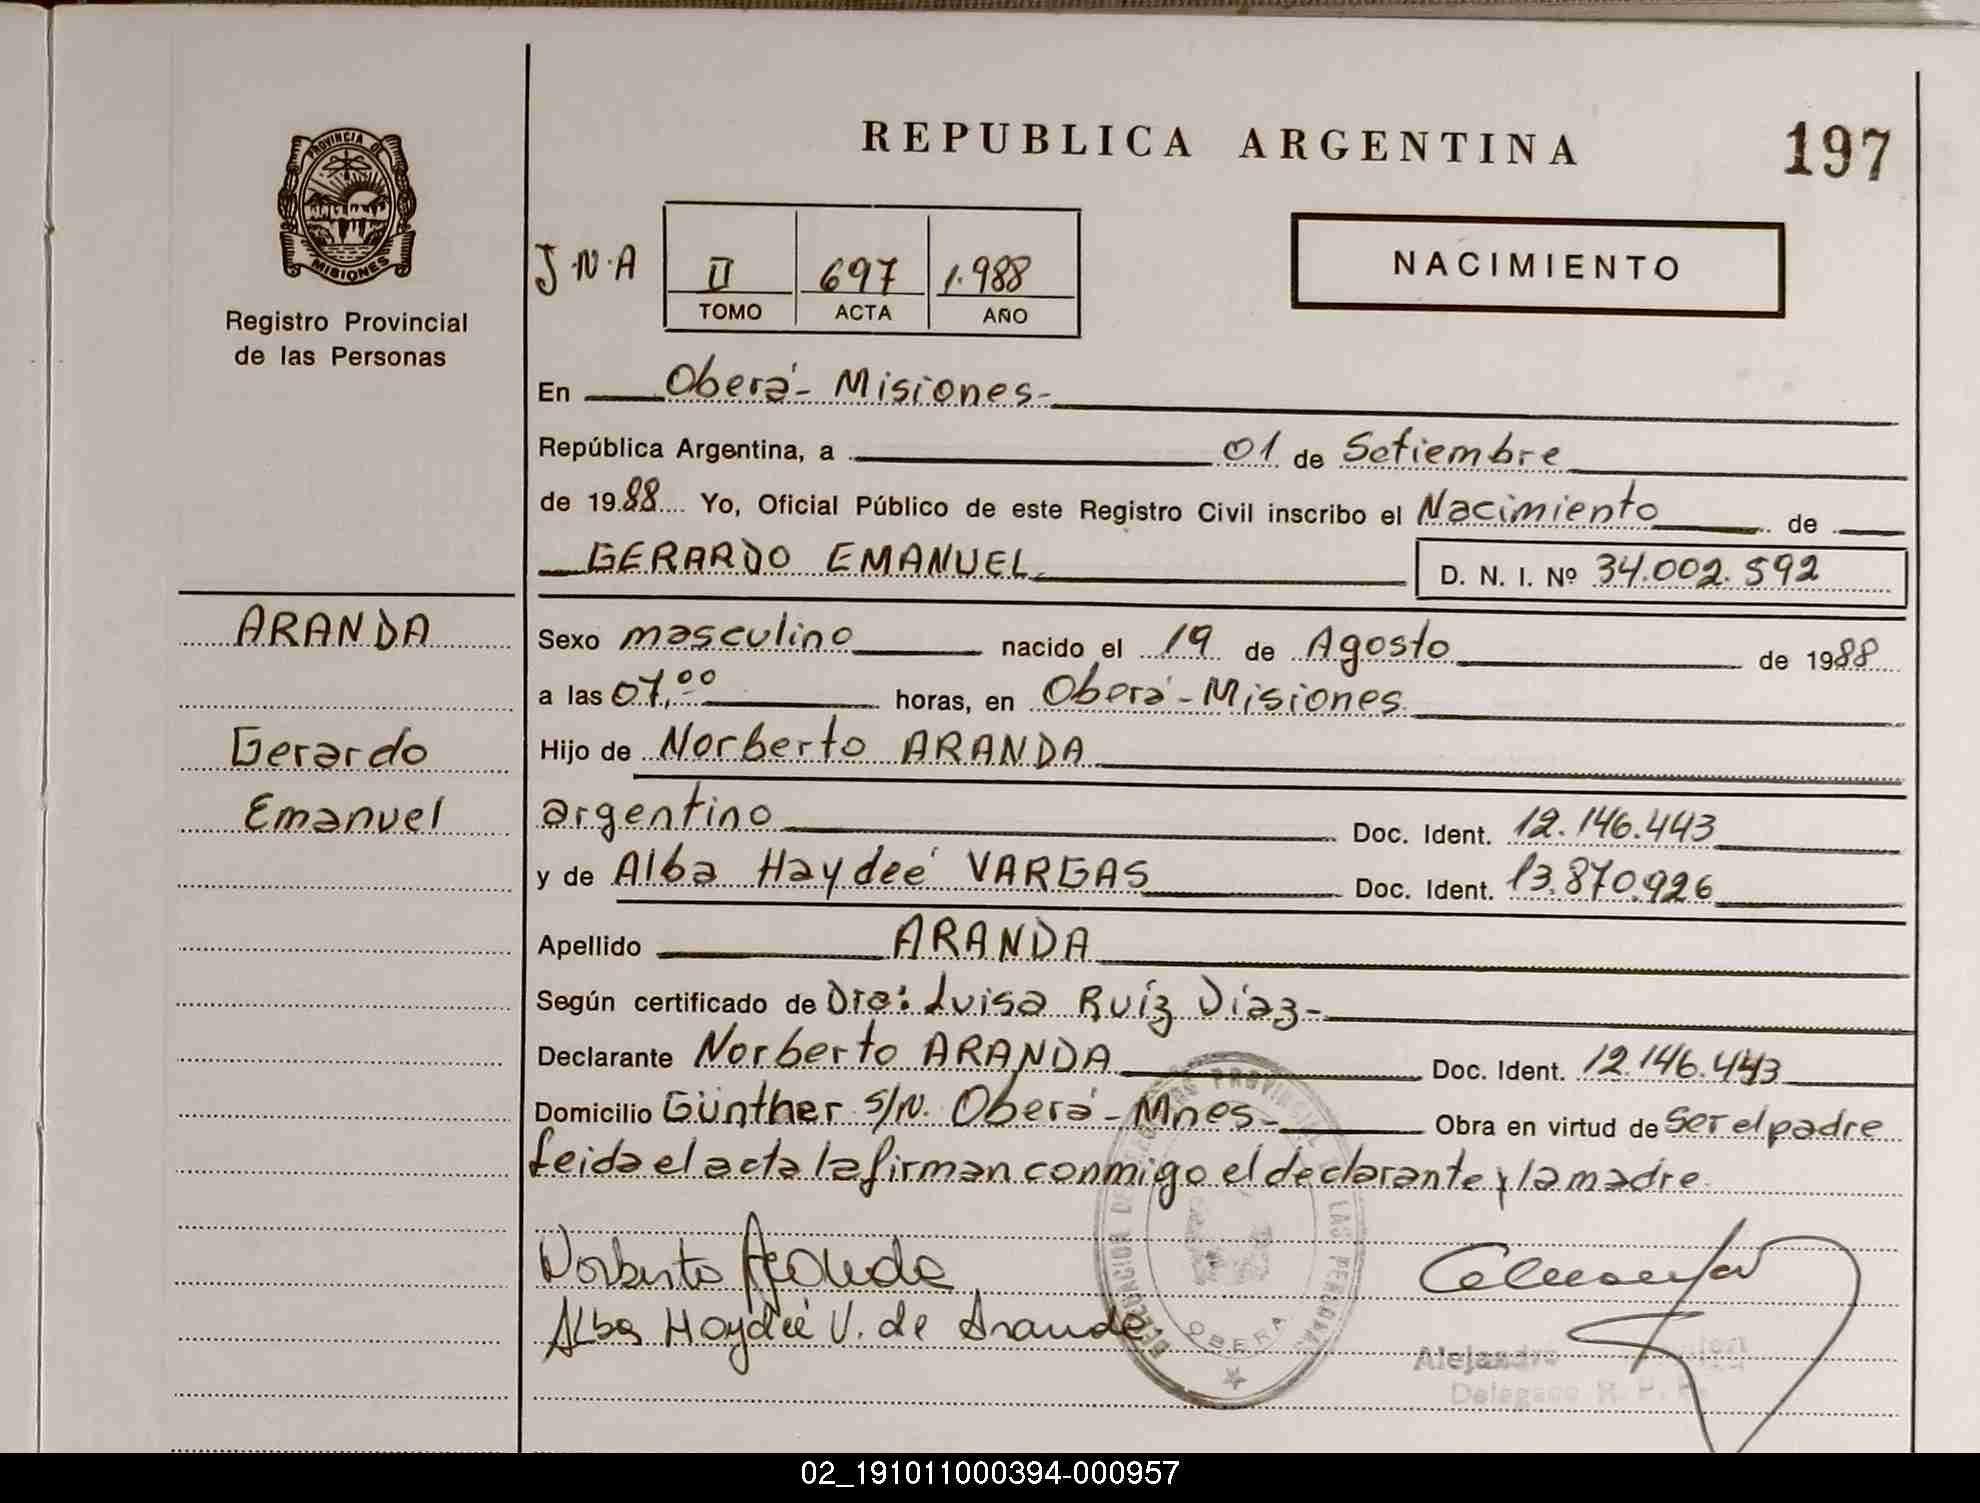 PROVINCIA DE
MISIONES
Registro Provincial
de las Personas
REPUBLICA ARGENTINA
197
J.N.A
II 697 1.988
TOMO ACTA AÑO
NACIMIENTO
En Oberá- Misiones-
República Argentina, a 01 de Setiembre
de 1988 Yo, Oficial Público de este Registro Civil inscribo el Nacimiento de
GERARDO EMANUEL D. N. I. Nº 34.002.592
ARANDA
Sexo masculino nacido el 19 de Agosto de 1988
a las 07,00 horas, en Oberá-Misiones
Gerardo
Hijo de Norberto ARANDA
Emanuel
argentino Doc. Ident. 12.146.443
y de Alba Haydeé VARGAS Doc. Ident. 13.870.926
Apellido ARANDA
Según certificado de Dra: Luisa Ruíz Díaz-
Declarante Norberto ARANDA Doc. Ident. 12.146.443
Domicilio Günther s/n. Oberá-Mnes- Obra en virtud de Ser el padre
Leida el acta la firman conmigo el declarante y la madre
Norberto Aranda
Alba Haydeé V. de Aranda
DELEGACION DE REGISTRO PROVINCIAL DE LAS PERSONAS
OBERA
Alejandro
Delegado R.P.P.
02_191011000394-000957